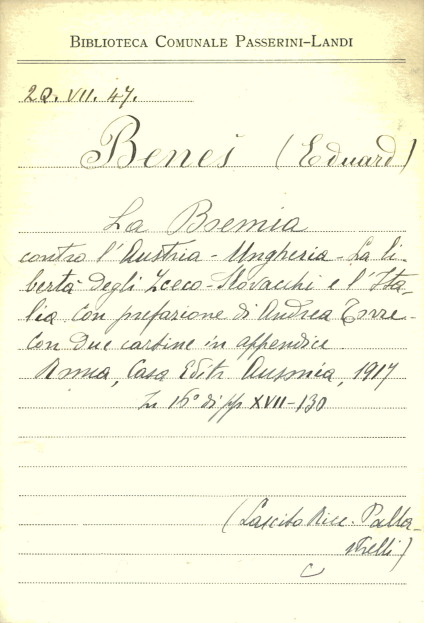 BIBLIOTECA COMUNALE PASSERINI-LANDI
2Q. VII. 47.
Beneš (Eduard)
La Boemia
contro l'Austria-Ungheria - La li-
bertà degli Czeco-Slovacchi e l'Ita-
lia con prefazione di Andrea Torre -
Con due cartine in appendice.
Roma, Casa Editr. Ausonia, 1917
In 16° di pp XVII-130
(Lascito Ricc. Palla-
strelli)
C